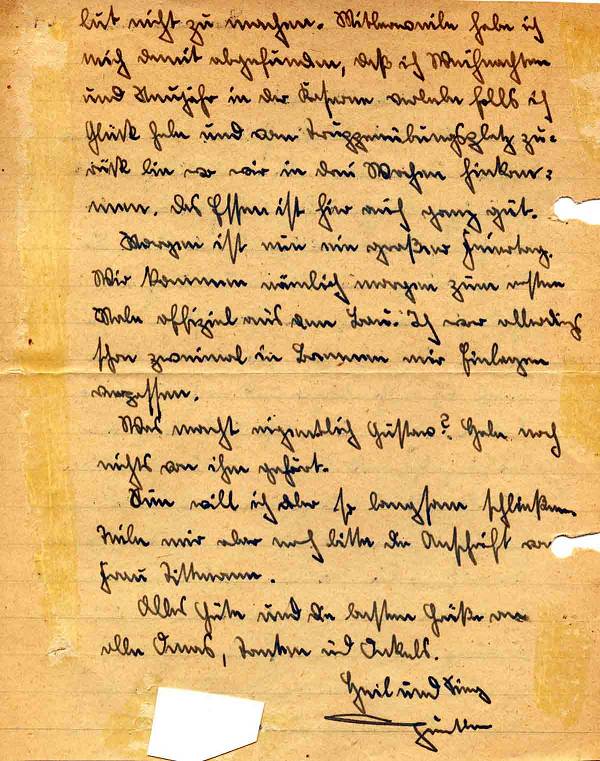 lut nicht zu machen. Mitlerweile habe ich
mich damit abgefunden, daß ich Weihnachten
und Neujahr in der Kaserne verlebe falls ich
Glück habe und vom Truppenübungsplatz zu-
rück bin wo wir in drei Wochen hinkom-
men. Das Essen ist hier auch ganz gut.
Morgen ist nun ein großer Feiertag.
Wir kommen nämlich morgen zum ersten
Male offiziel aus dem Bau. Ich war allerdings
schon zweimal in Bremen mir Einlagen
anpassen.
Was macht eigentlich Gustav? Habe noch
nichts von ihm gehört.
Nun will ich aber so langsam schließen
Teile mir aber noch bitte die Anschrift von
Frau Tittmann.
Alles Gute und die besten Grüße an
alle Omas, Tanten ud Onkels.
Heil und Sieg
Günther